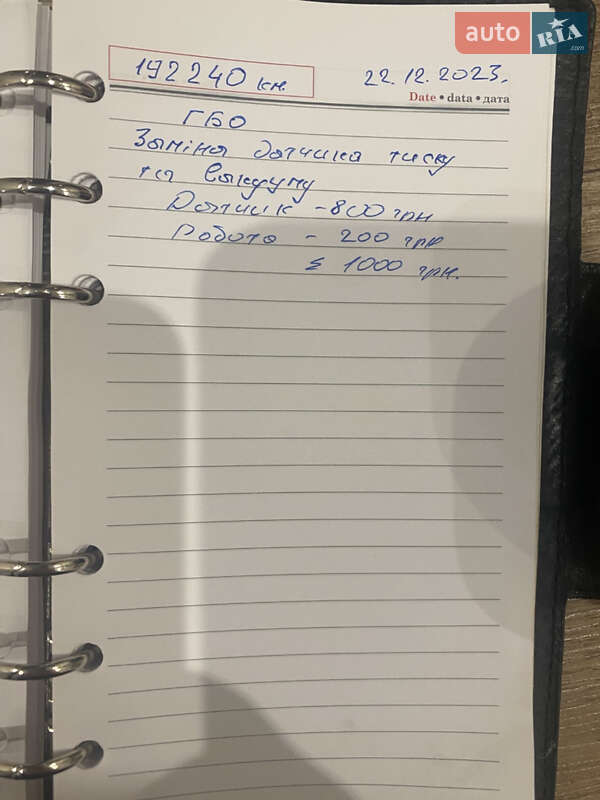 auto RIA .com
192240 км. 22.12.2023.
Date • data • дата
ГБО
Заміна датчика тиску
та вакууму
Датчик - 800 грн
Робота - 200 грн
Σ 1000 грн.